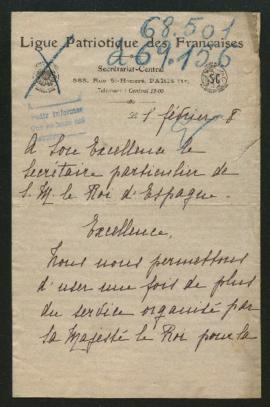 68.501
269.155
Ligue Patriotique des Françaises
Secrétariat-Central
368, Rue St-Honoré, PARIS 1er
le 1 février 8
A Son Excellence le
Secrétaire particulier de
S. M. le Roi d'Espagne.
Excellence,
Nous nous permettons
d'user une fois de plus
du service organisé par
Sa Majesté le Roi pour la